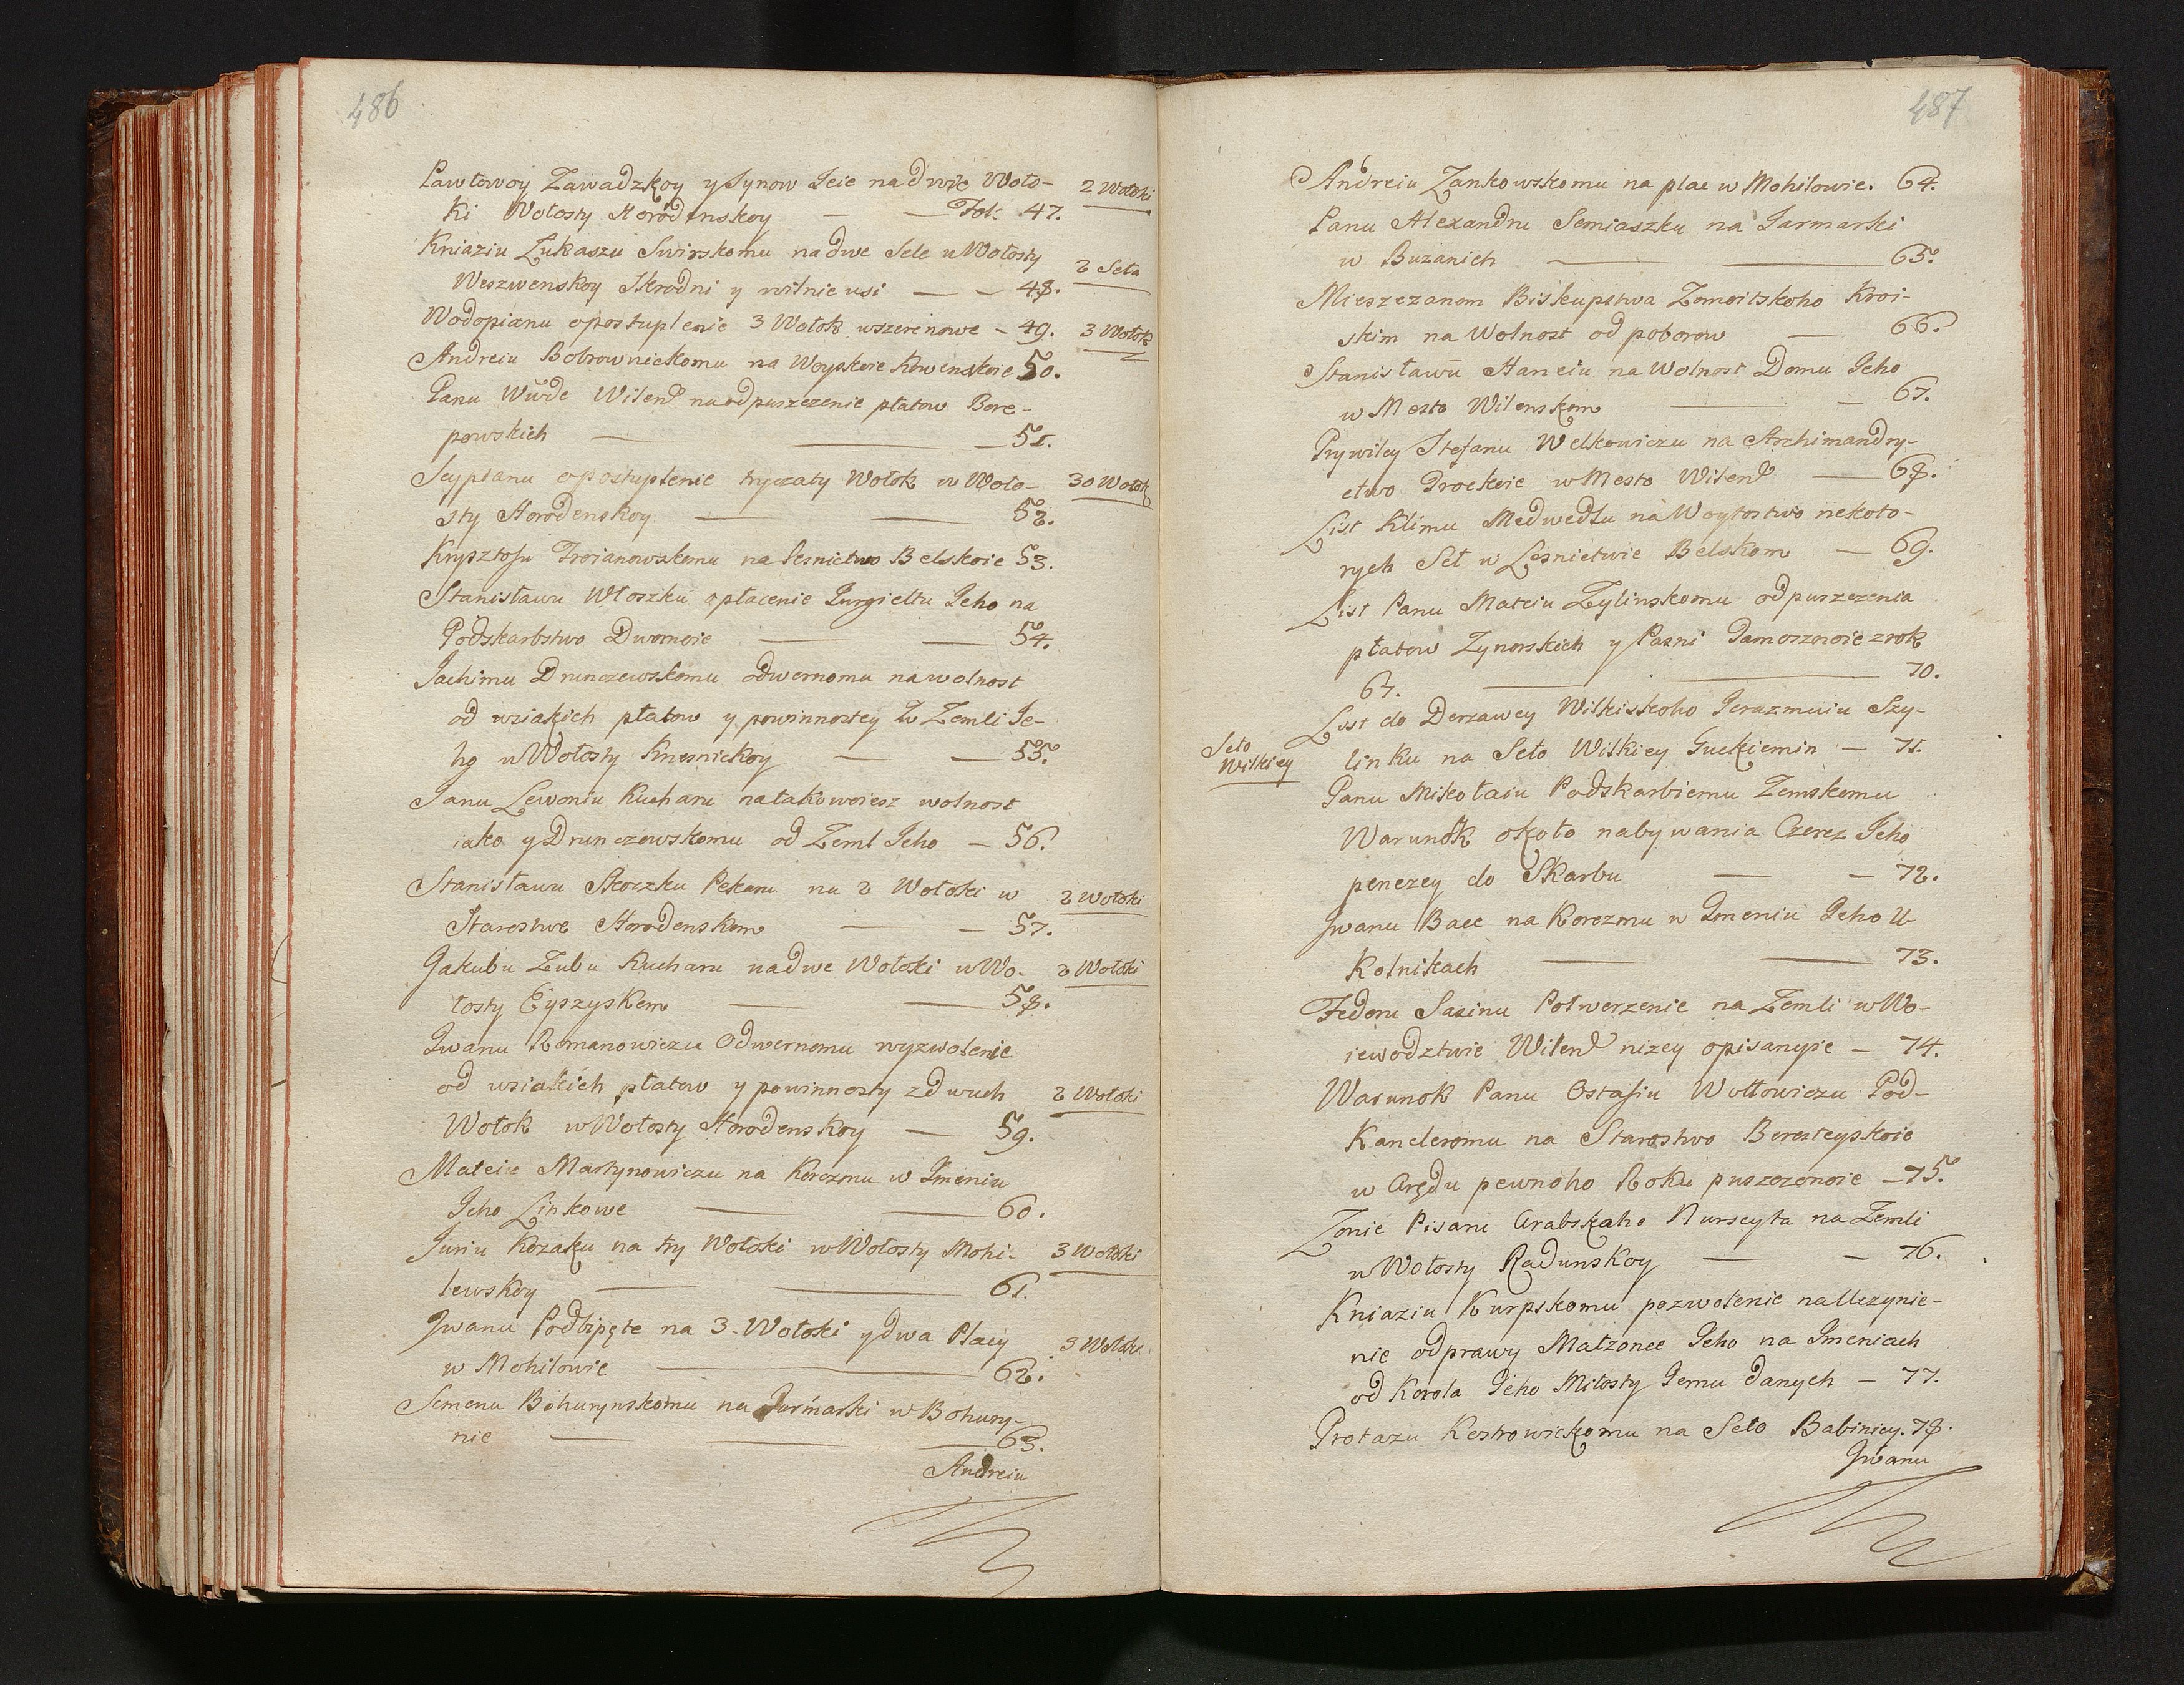 486
Pawłowoy Zawadzkoy y Synow Jeie na dwie Woło- 2 Wołoki
ki Wołosty Horodenskoy — — Fol: 47.
Kniaziu Łukaszu Swirskomu na dwe Sele u Wołosty 2 Seła
Weszwenskoy Skrodni y wilnieusi — — 48.
Wodopianu opostuplenie 3 Wołok wszerenowe — 49. 3 Wołok
Andreiu Bobrownickomu na Woyskoie Kowenskoie 50.
Panu Wwde Wilen na odpuszczenie płatow Bore-
powskich — — 51.
Scypianu opostuplenie tryczaty Wołok w Woło- 30 Wołok
sty Horodenskoy — — 52.
Krysztofu Troianowskomu na lesnictwo Belskoie 53.
Stanisławu Włoszku opłacenie Jurgieltu Jeho na
Podskarbstwo Dwornoie — — 54.
Jachimu Drunczewskomu odwernomu na wolnost
od wsiakich płatow y powinnostey Iz Zemli Je-
ho u Wołosty Knesnickoy — — 55.
Janu Lewoniu Kucharu na takowoiesz wolnost
iako y Drunczewskomu od Zeml Jeho — 56.
Stanisławu Skoczku Pekaru na 2 Wołoki w 2 Wołoki
Starostwe Horodenskom — — 57.
Jakubu Zubu Kucharu na dwe Wołoki u Wo- 2 Wołoki
łosty Eyszyskom — — 58.
Iwanu Romanowiczu Odwernomu wyzwolenie
od wsiakich płatow y powinnosty z dwuch 2 Wołoki
Wołok w Wołosty Horodenskoy — 59.
Mateiu Martynowiczu na Korczmu w Imeniu
Jeho Linkowe — — 60.
Juriu Kozaku na try Wołoki w Wołosty Mohi- 3 Wołoki
lewskoy — — 61.
Iwanu Podbipęte na 3. Wołoki y dwa Placy 3 Wołoki
w Mohilowie — 62.
Semenu Bohurynskomu na Jarmarki w Bohury-
nie — — 63.
Andreiu
487
Andreiu Zankowskomu na plac w Mohilowie. 64.
Panu Alexandru Semiaszku na Jarmarki
w Buzanich — — 65.
Mieszczanom Biskupstwa Zomoitskoho Kroi-
skim na Wolnost od poborow — 66.
Stanisławu Hanciu na Wolnost Domu Jeho
w Mesto Wilenskom — — 67.
Prywiley Stefanu Welkowiczu na Archimandry-
ctwo Trockoie w Mesto Wilen — 68.
List Klimu Medwedlu na Woytostwo nekoto-
rych Seł w Lesnictwie Belskom — 69.
List Panu Mateiu Zylinskomu odpuszczenia
płatow Zynorskich y Pasni Damosznoie z rok
67. — — 70.
List do Derzawcy Wilkiskoho Jerazmuiu Szy-
Seło Wilkiey
linku na Seło Wilkiey Guckiemin — 71.
Panu Mikołaiu Podskarbiemu Zemskomu
Warunok około nabywania Czerez Jeho
penezey do Skarbu — — 72.
Iwanu Bace na Korczmu w Imeniu Jeho U
Kolnikach — — 73.
Fedoru Sasinu Potwerzenie na Zemli w Wo-
iewodztwie Wilen nizey opisanyie — 74.
Warunok Panu Ostafiu Wołłowiczu Pod-
Kancleromu na Starostwo Beresteyskoie
w Arędu pewnoho Roku puszczonoie — 75.
Zonie Pisaru Arabskaho Kurseyta na Zemli
u Wołosty Radunskoy — — 76.
Kniaziu Kurpskomu pozwolenie na Uczynie-
nie odprawy Małzonce Jeho na Imeniach
od Korola Jeho Miłosty Jemu danych — 77.
Protazu Kostrowickomu na Seło Babinicy. 78.
Iwanu